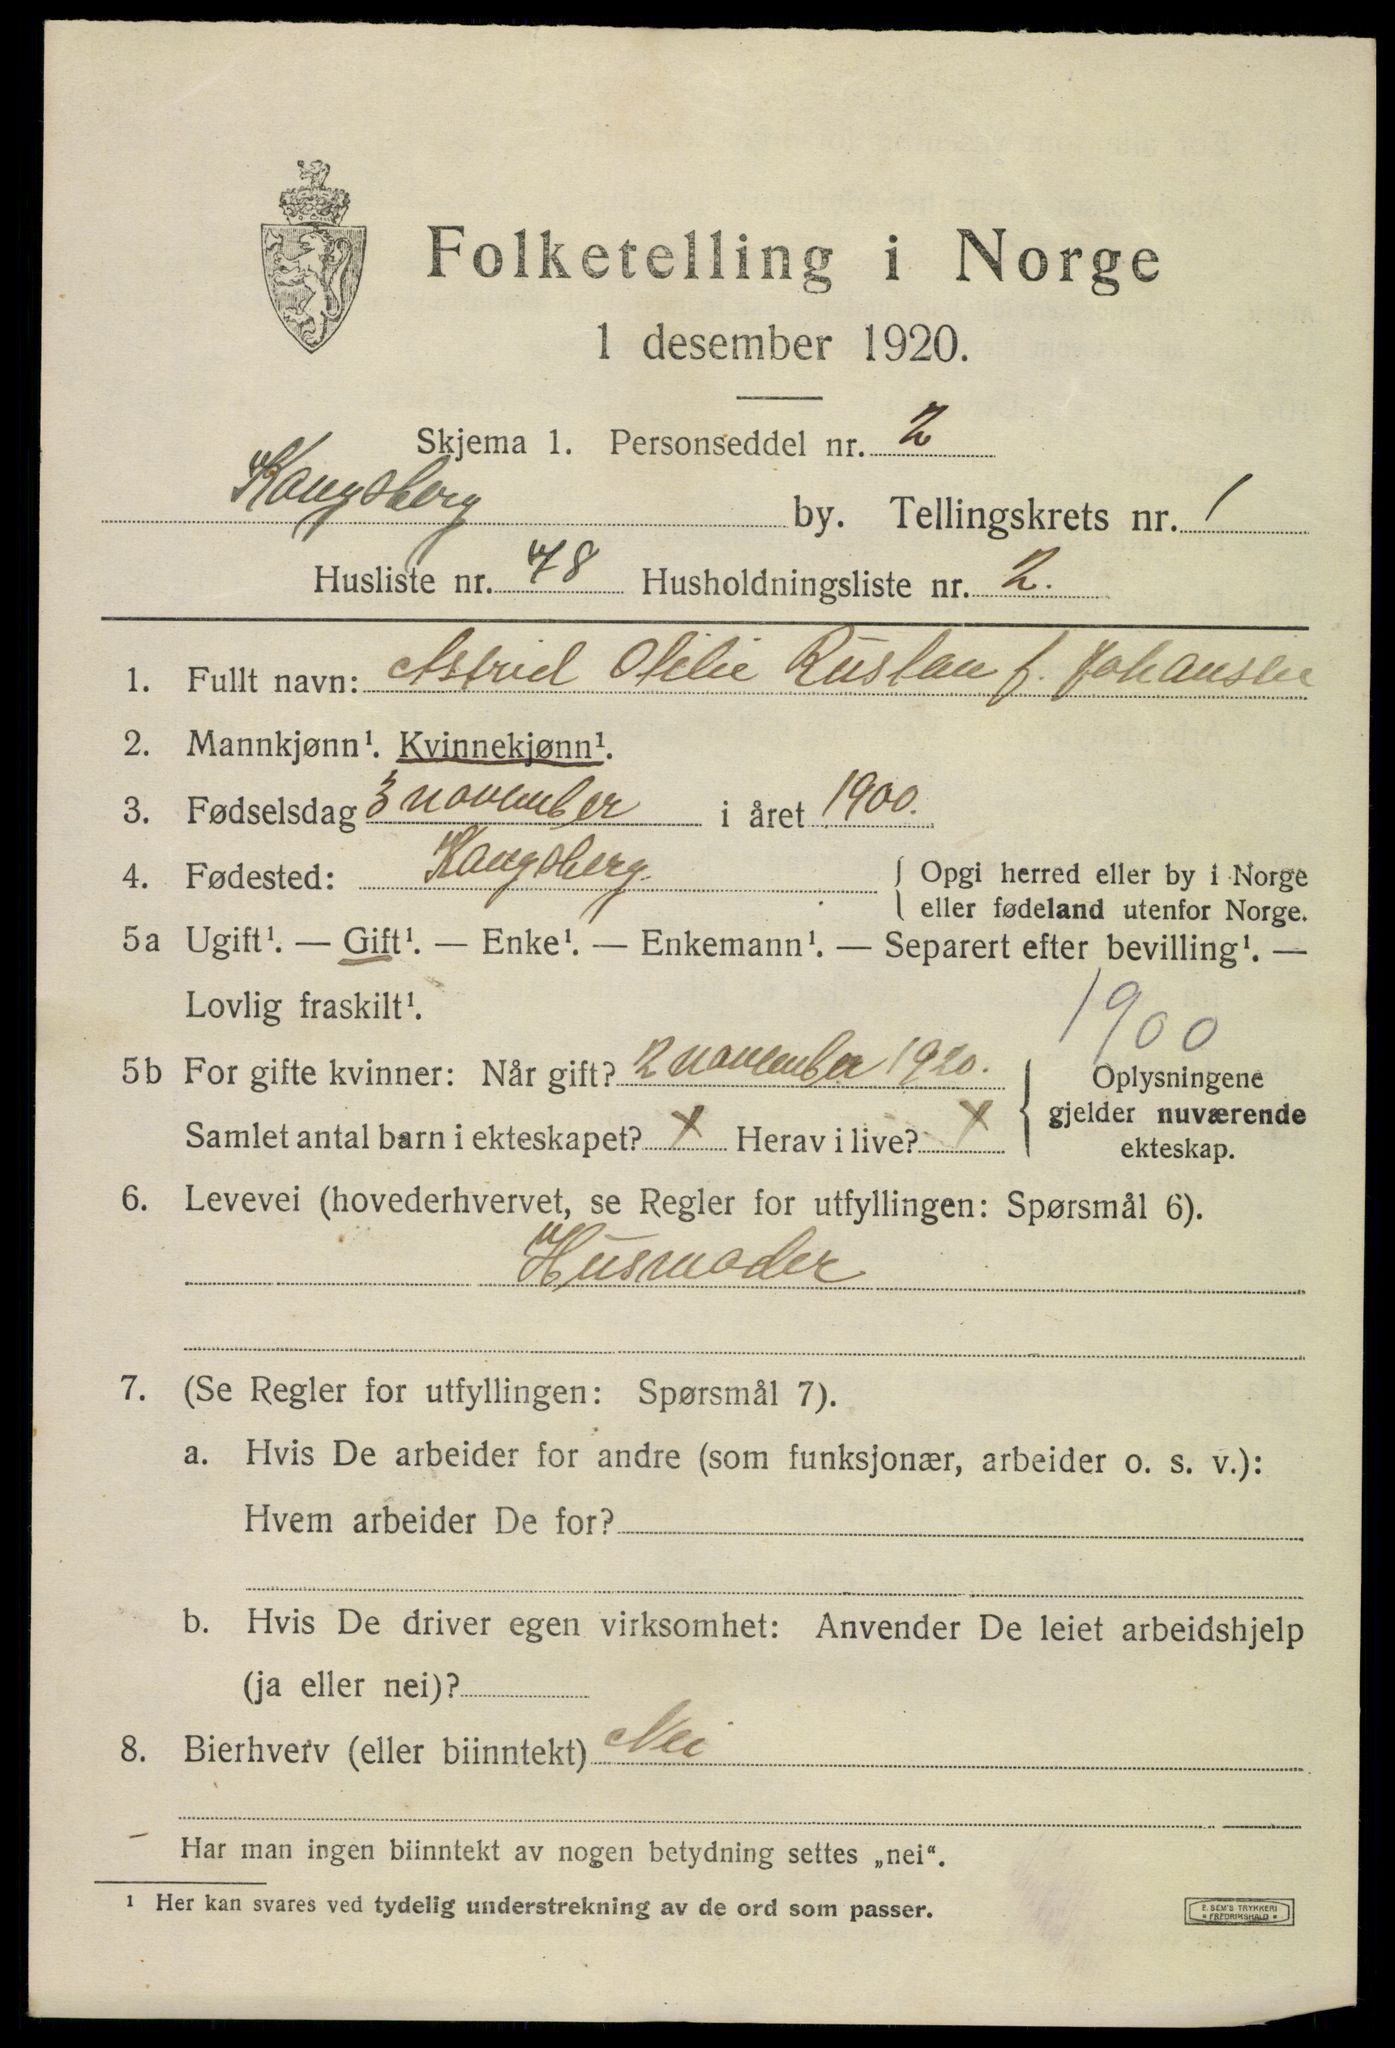 Folketelling i Norge
1 desember 1920.
Skjema 1. Personseddel nr. 2
Kongsberg by. Tellingskrets nr. 1
Husliste nr. 78 Husholdningsliste nr. 2.
1. Fullt navn: Astrid Otilie Rustan f. Johansen
2. Mannkjønn¹. Kvinnekjønn¹.
3. Fødselsdag 3 november i året 1900.
4. Fødested: Kongsberg. { Opgi herred eller by i Norge
eller fødeland utenfor Norge.
5a Ugift¹. — Gift¹. — Enke¹. — Enkemann¹. — Separert efter bevilling¹. —
Lovlig fraskilt¹.
1900
5b For gifte kvinner: Når gift? 12 november 1920.
Samlet antal barn i ekteskapet? X Herav i live? X
{ Oplysningene
gjelder nuværende
ekteskap.
6. Levevei (hovederhvervet, se Regler for utfyllingen: Spørsmål 6).
Husmoder
7. (Se Regler for utfyllingen: Spørsmål 7).
a. Hvis De arbeider for andre (som funksjonær, arbeider o. s. v.):
Hvem arbeider De for?
b. Hvis De driver egen virksomhet: Anvender De leiet arbeidshjelp
(ja eller nei)?
8. Bierhverv (eller biinntekt) Nei
Har man ingen biinntekt av nogen betydning settes „nei“.
¹ Her kan svares ved tydelig understrekning av de ord som passer.
E. SEM'S TRYKKERI
* FREDRIKSHALD *